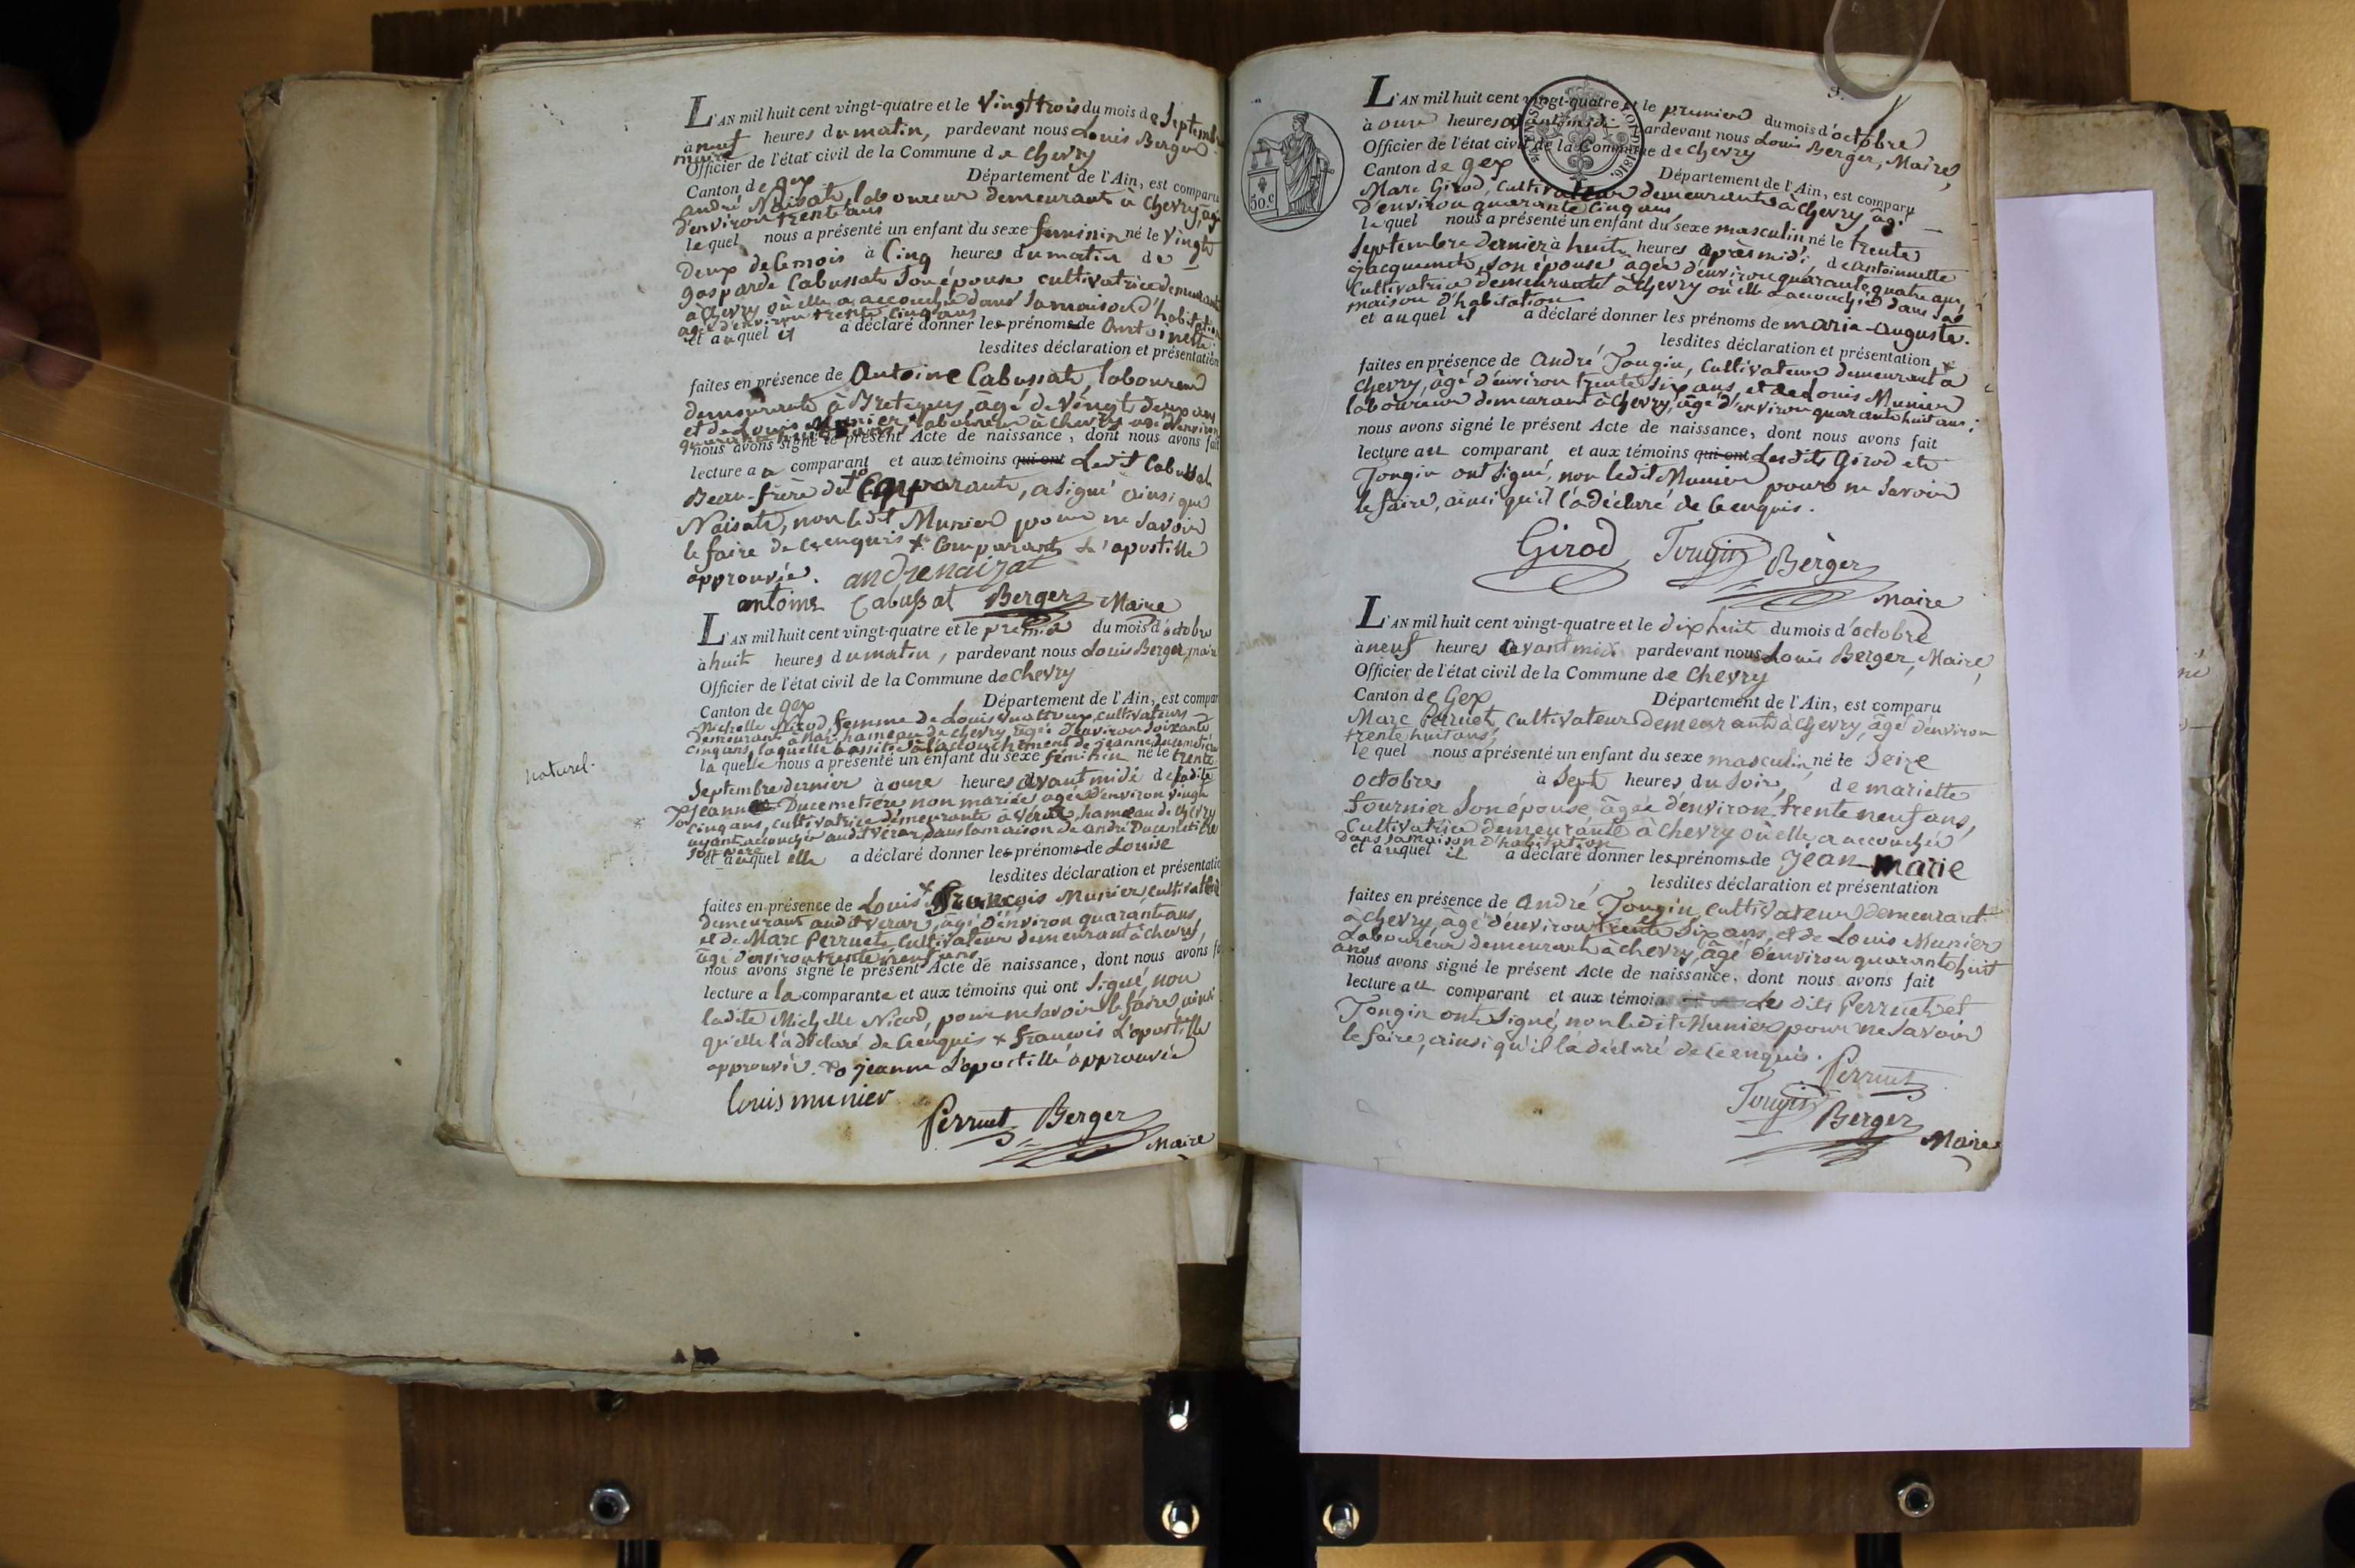 L'AN mil huit cent vingt-quatre et le vingt trois du mois de Septembre
à neuf heures du matin, pardevant nous Louis Berger
maire
Officier de l'état civil de la Commune de Chevry
Canton de gex Département de l'Ain, est comparu
andré Naisat, laboureur demeurant à Chevry, âgé
d'environ trente ans
lequel nous a présenté un enfant du sexe feminin né le vingt
deux de ce mois à Cinq heures du matin de
gasparde Cabussat Son épouse cultivatrice demeurant
à Chevry où elle a accouchée dans sa maison d'habitation
agée d'environ trente cinq ans
et auquel il a déclaré donner les prénoms de Antoinette
lesdites déclaration et présentation
faites en présence de Antoine Cabussat, laboureur
demeurant à Bretegny, âgé de vingt deux ans
et de Louis Munier, laboureur à Chevry agé d'environ
quarante huit ans
nous avons signé le présent Acte de naissance, dont nous avons fait
lecture au comparant et aux témoins qui ont Ledit Cabussat
Beau-frère du comparant, a signé ainsi que
Naisat, non ledit Munier pour ne savoir
le faire de ce enquis + Comparant L'apostille
approuvée. andre naizat
antoine Cabussat Berger Maire
L'AN mil huit cent vingt-quatre et le premier du mois d'octobre
à huit heures du matin, pardevant nous Louis Berger, maire
Officier de l'état civil de la Commune de Chevry
Canton de gex Département de l'Ain, est comparu
Michelle Nicod femme de Louis cultivateurs
demeurant à hameau de Chevry, âgée d'environ soixante
cinq ans, laquelle a assisté à l'accouchement de jeanne Ducimetière
laquelle nous a présenté un enfant du sexe féminin né le trente
naturel.
Septembre dernier à onze heures avant midi de ladite
Jeanne Ducimetière non mariée agée d'environ vingt
cinq ans, cultivatrice demeurante à Véraz, hameau de Chevry
ayant accouchée audit Véraz dans la maison de André Ducimetière
son père
et auquel elle a déclaré donner les prénoms de Louise
lesdites déclaration et présentation
faites en présence de Louis + françois Munier, cultivateur
demeurant audit Veraz, âgé d'environ quarante ans
et de Marc Perruet, Cultivateur demeurant à chevry,
âgé d'environ trente neuf ans
nous avons signé le présent Acte de naissance, dont nous avons fait
lecture a la comparante et aux témoins qui ont signé, non
ladite Michelle Nicod, pour ne savoir le faire ainsi
qu'elle l'a déclaré de ce enquis + françois L'apostille
approuvée. jeanne L'apostille approuvée
louis munier
Perruet Berger
Maire
L'AN mil huit cent vingt-quatre et le premier du mois d'octobre
à onze heures avant midi pardevant nous Louis Berger, Maire,
Officier de l'état civil de la Commune de Chevry
Canton de gex Département de l'Ain, est comparu
Marc Girod, Cultivateur demeurant à Chevry, âgé
d'environ quarante cinq ans,
lequel nous a présenté un enfant du sexe masculin né le trente
Septembre dernier à huit heures après midi de Antoinnette
Jacquemet, son épouse agée d'environ quarante quatre ans,
Cultivatrice demeurante à Chevry où elle a accouchée dans sa
maison d'habitation
et auquel il a déclaré donner les prénoms de marie-auguste.
lesdites déclaration et présentation
faites en présence de André Tougin, Cultivateur demeurant à
Chevry, âgé d'environ trente six ans, et de Louis Munier
laboureur demeurant à Chevry, âgé d'environ quarante huit ans;
nous avons signé le présent Acte de naissance, dont nous avons fait
lecture au comparant et aux témoins qui ont Lesdits Girod et
Tougin ont signé, non ledit Munier pour ne savoir
le faire, ainsi qu'il l'a déclaré de ce enquis.
Girod Tougin Berger
Maire
L'AN mil huit cent vingt-quatre et le dix huit du mois d'octobre
à neuf heures avant midi pardevant nous Louis Berger, Maire,
Officier de l'état civil de la Commune de Chevry
Canton de Gex Département de l'Ain, est comparu
Marc Perruet, Cultivateur demeurant à Chevry, âgé d'environ
trente huit ans,
lequel nous a présenté un enfant du sexe masculin, né le seize
octobre à sept heures du soir, de mariette
fournier son épouse âgée d'environ trente neuf ans,
Cultivatrice demeurante à Chevry où elle a accouchée
dans sa maison d'habitation
et auquel il a déclaré donner les prénoms de Jean-Marie
lesdites déclaration et présentation
faites en présence de André Tougin, cultivateur demeurant
à chevry, âgé d'environ trente six ans, et de Louis Munier
Laboureur demeurant à chevry, âgé d'environ quarante huit
ans
nous avons signé le présent Acte de naissance, dont nous avons fait
lecture au comparant et aux témoins Lesdits Perruet et
Tougin ont signé, non ledit Munier pour ne savoir
le faire, ainsi qu'il l'a déclaré de ce enquis.
Perruet
Tougin Berger
Maire
50.C